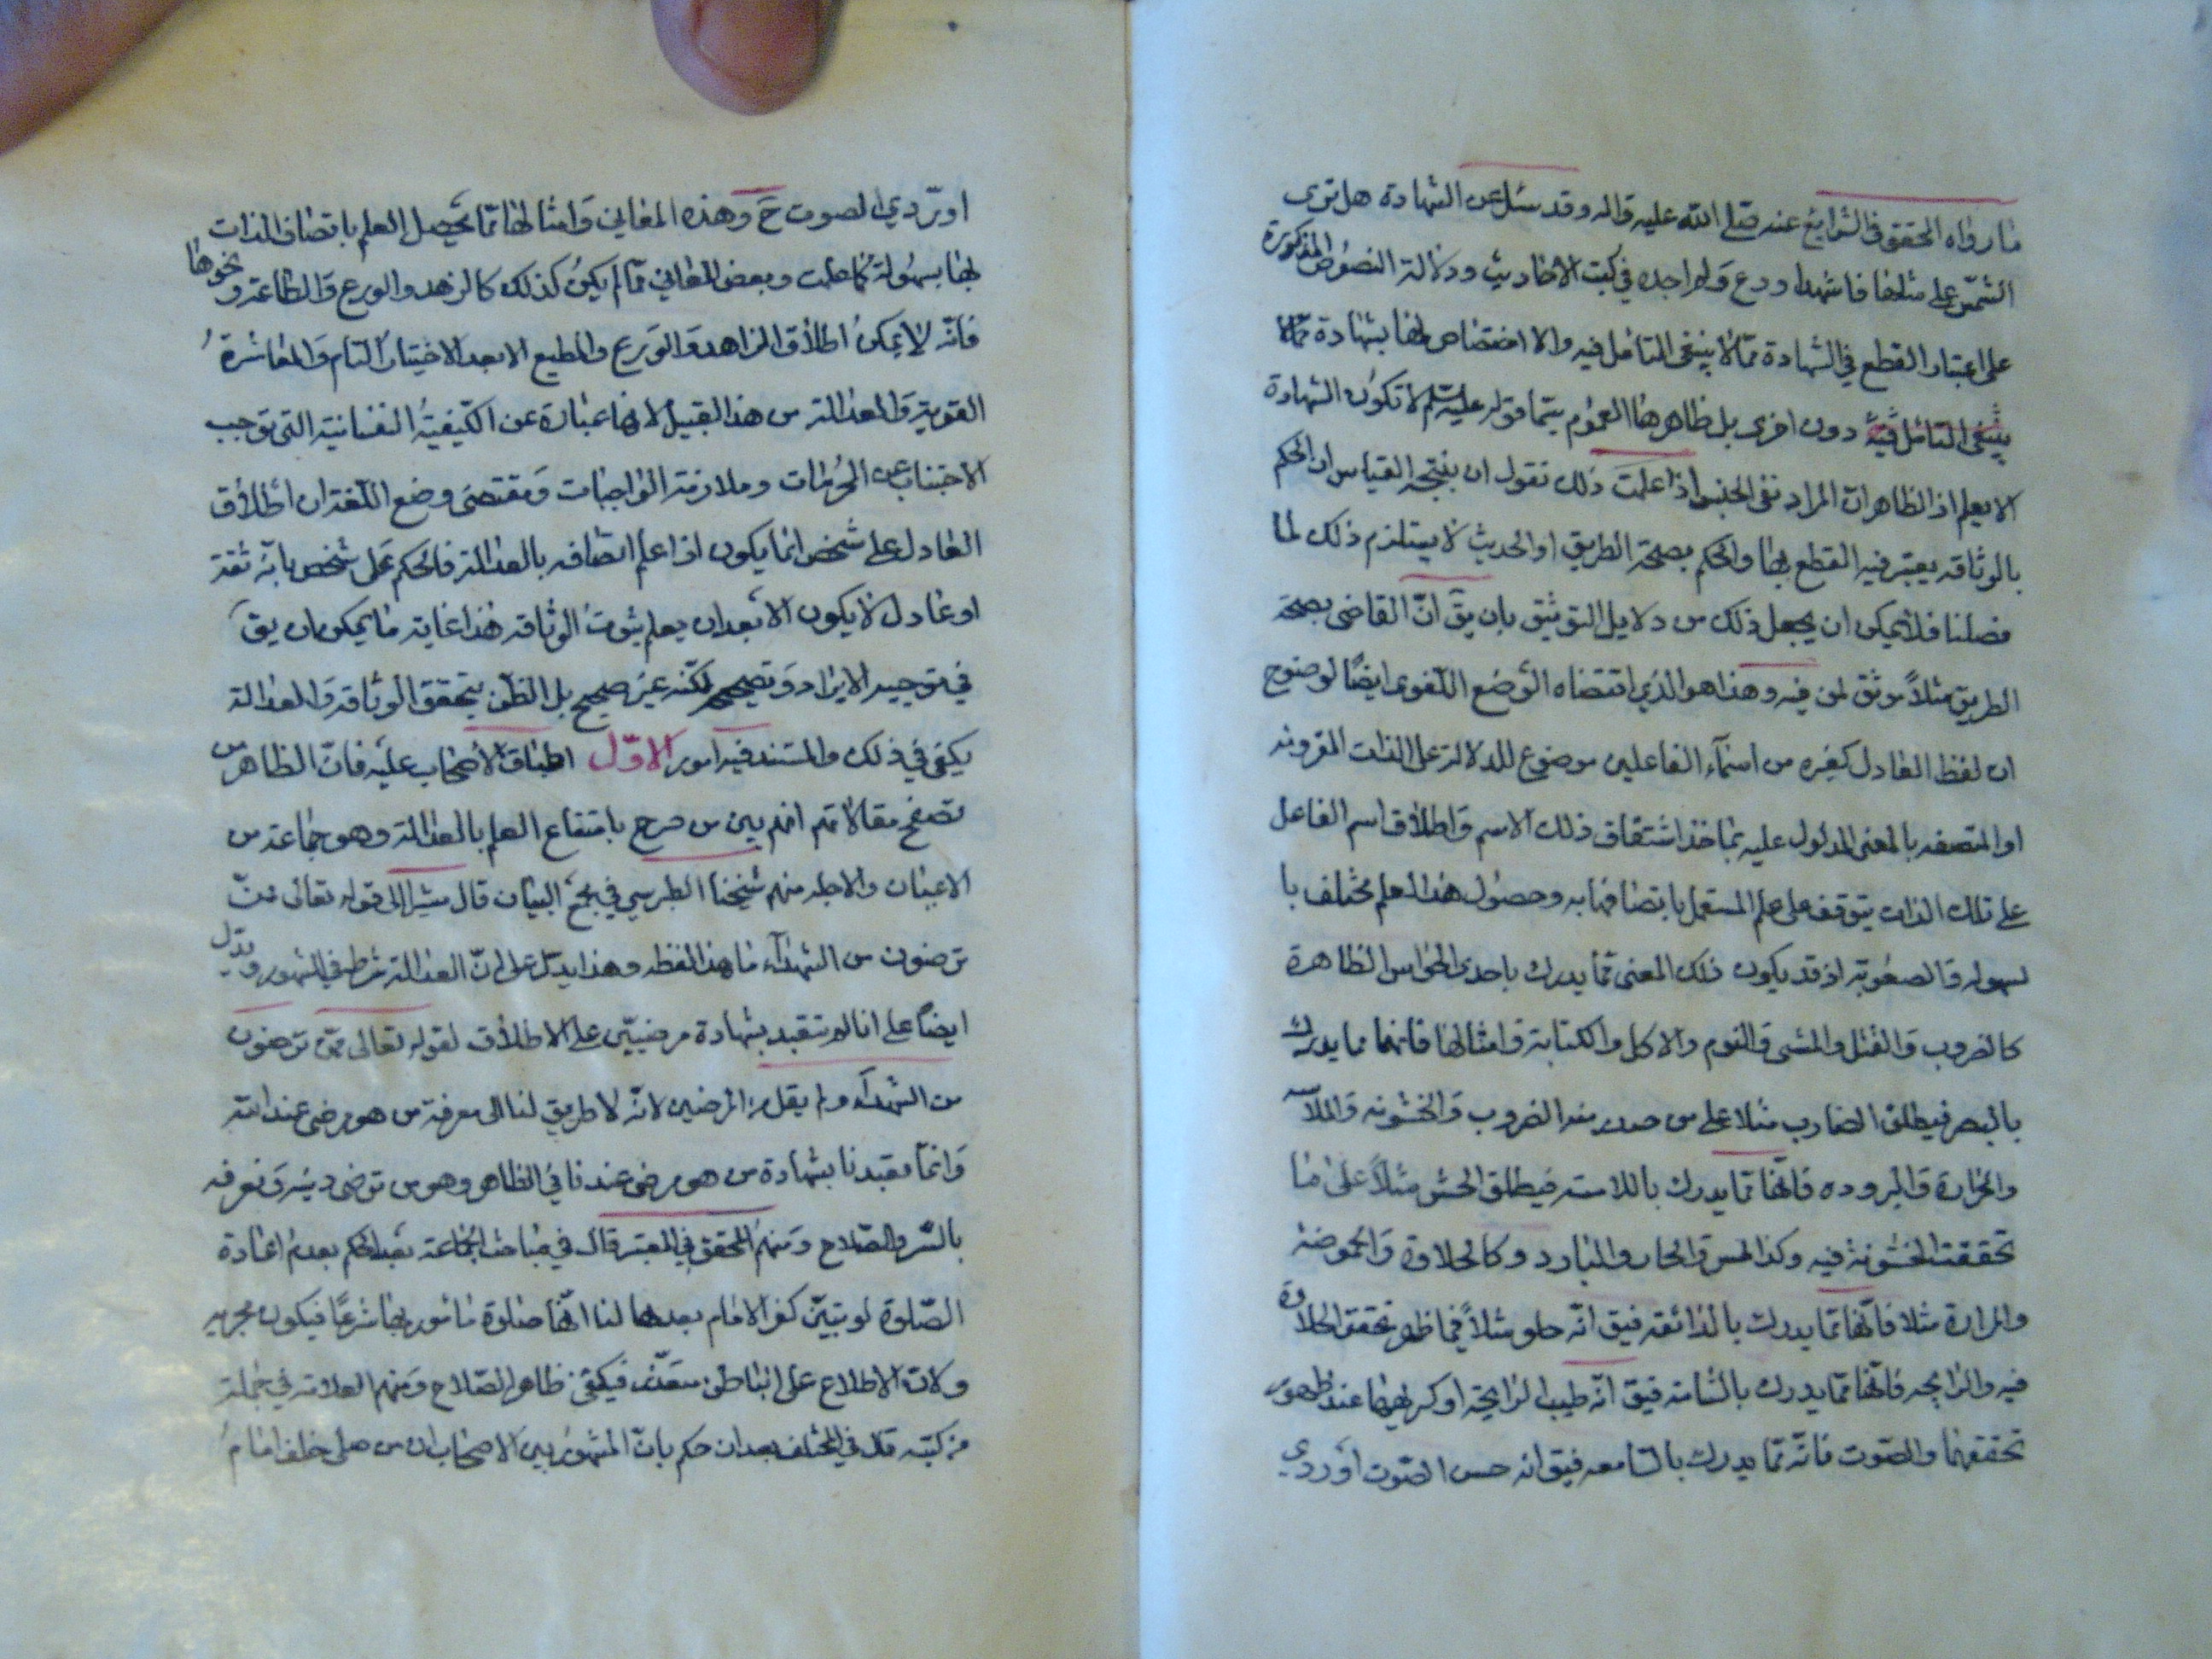 ما رواه المحقق في الشرايع عنه صلى الله عليه واله وقد سئل عن الشهادة هل ترى
الشمس على مثلها فاشهد او دع ولم اجده في كتب الاحاديث ودلالة النصوص المذكورة
على اعتبار القطع في الشهادة مما لا ينبغي التامل فيه والا اختصاص لها بشهادة مما لا
ينبغي التامل فيه دون اخرى بل ظاهرها العموم سيما قوله عليه السلم لا تكون الشهادة
الا بعلم اذ الظاهر ان المراد نفى الجنس اذا علمت ذلك نقول ان نتيجة القياس ان الحكم
بالوثاقة يعتبر فيه القطع بها والحكم بصحة الطريق او الحديث لا يستلزم ذلك لما
فصلنا فلا يمكن ان يجعل ذلك من دلايل التوثيق بان يق انّ القاضى بصحة
الطريق مثلاً موثق لمن فيه وهذا هو الذي اقتضاه الوضع اللغوى ايضًا لوضوح
ان لفظ العادل كغيره من اسمآء الفاعلين موضوع للدلالة على الذات المقرونه
او المتصفه بالمعنى المدلول عليه بماخذ اشتقاق ذلك الاسم واطلاق اسم الفاعل
على تلك الذات يتوقف على علم المستعمل باتصافها به وحصول هذا العلم مختلف با
لسهوله والصعوبة اذ قد يكون ذلك المعنى مما يدرك باحدى الحواس الظاهرة
كالضروب والقتل والمشى والنوم والاكل والكتابة وامثالها فانهما مما يدرك
بالبصر فيطلق الضارب مثلا على من صدر منه الضروب والخشونه والملاسه
والحرارة والبروده فانّها مما يدرك باللامسة فيطلق الخشن مثلاً على ما
تحققت الخشونة فيه وكذا المس والحار والبارد وكالحلاوة والحموضة
والمرارة مثلا فانّها مما يدرك بالذائقه فيق انّه حلو مثلاً فيما ظهر تحقق الحلاوة
فيه والرايحه فانّها مما يدرك بالشامة فيق انّه طيب الرايحة او كريهها عند ظهور
تحققهما والصّوت فانّه مما يدرك بالسامعه فيق انه حسن الصّوت او ردي
او تردي الصوت ح وهذه المعاني وامثالها مما يحصل العلم باتصاف الذات
بها بسهولة كما علمت وبعض المعاني مما لم يكن كذلك كالزهد والورع والطاعة ونحوها
فانّه لا يمكن اطلاق الزاهد والورع والمطيع الا بعد الاختبار التام والمعاشرة
القوية والعدالة من هذا القبيل لانها عبارة عن الكيفية النفسانية التي توجب
الاجتناب عن المحرمات وملازمة الواجبات ومقتضى وضع اللغة ان اطلاق
العادل على شخص انما يكون اذا علم اتصافه بالعدالة فالحكم على شخص بانّه ثقة
او عادل لا يكون الا بعد ان يعلم ثبوت الوثاقه هذا غاية ما يمكن ان يق
في توجيه الايراد وتصحيحه لكنّه غير صحيح بل الظن بتحقق الوثاقة والعدالة
يكفى في ذلك والمستند فيه امور الاوّل اطباق الاصحاب عليه فانّ الظاهر من
تصفح مقالاتهم انهم بين من صرح بامتناع العلم بالعدالة وهو جماعة من
الاعيان والاجله منهم شيخنا الطبرسي في مجمع البيان قال مشيرا الى قوله تعالى ممن
ترضون من الشهدآء ما هذا لفظه وهذا يدل على انّ العدالة شرط في الشهود ويدل
ايضًا على انا لم نتعبد بشهادة مرضيين على الاطلاق لقوله تعالى ممن ترضون
من الشهدآء ولم يقل من المرضيين لانّه لا طريق لنا الى معرفة من هو مرضى عند الله
وانما تعبدنا بشهادة من هو مرضى عندنا في الظاهر وهو من ترضى دينه ونعرفه
بالستر والصلاح ومنهم المحقق في المعتبر قال في مباحث الجماعة بعد الحكم بعدم اعادة
الصّلوة لو تبيّن كفر الامام بعدها لنا انّها صلوة مامور بها شرعًا فيكون مجزيه
ولانّ الاطلاع على الباطن متعذر فيكفى ظاهر الصّلاح ومنهم العلامة في جملة
من كتبه قال في المختلف بعد ان حكم بانّ المشهور بين الاصحاب ان من صلى خلف امام